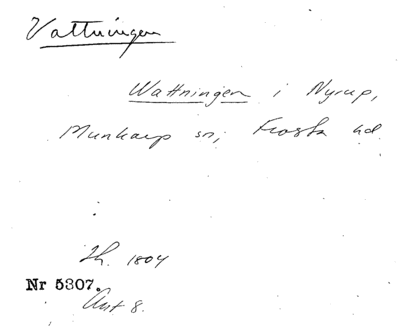 Vattningen
Wattningen i Nyrup,
Munkarp sn, Frosta hd.
Sk. 1804
Nr 5307.
Akt 8.